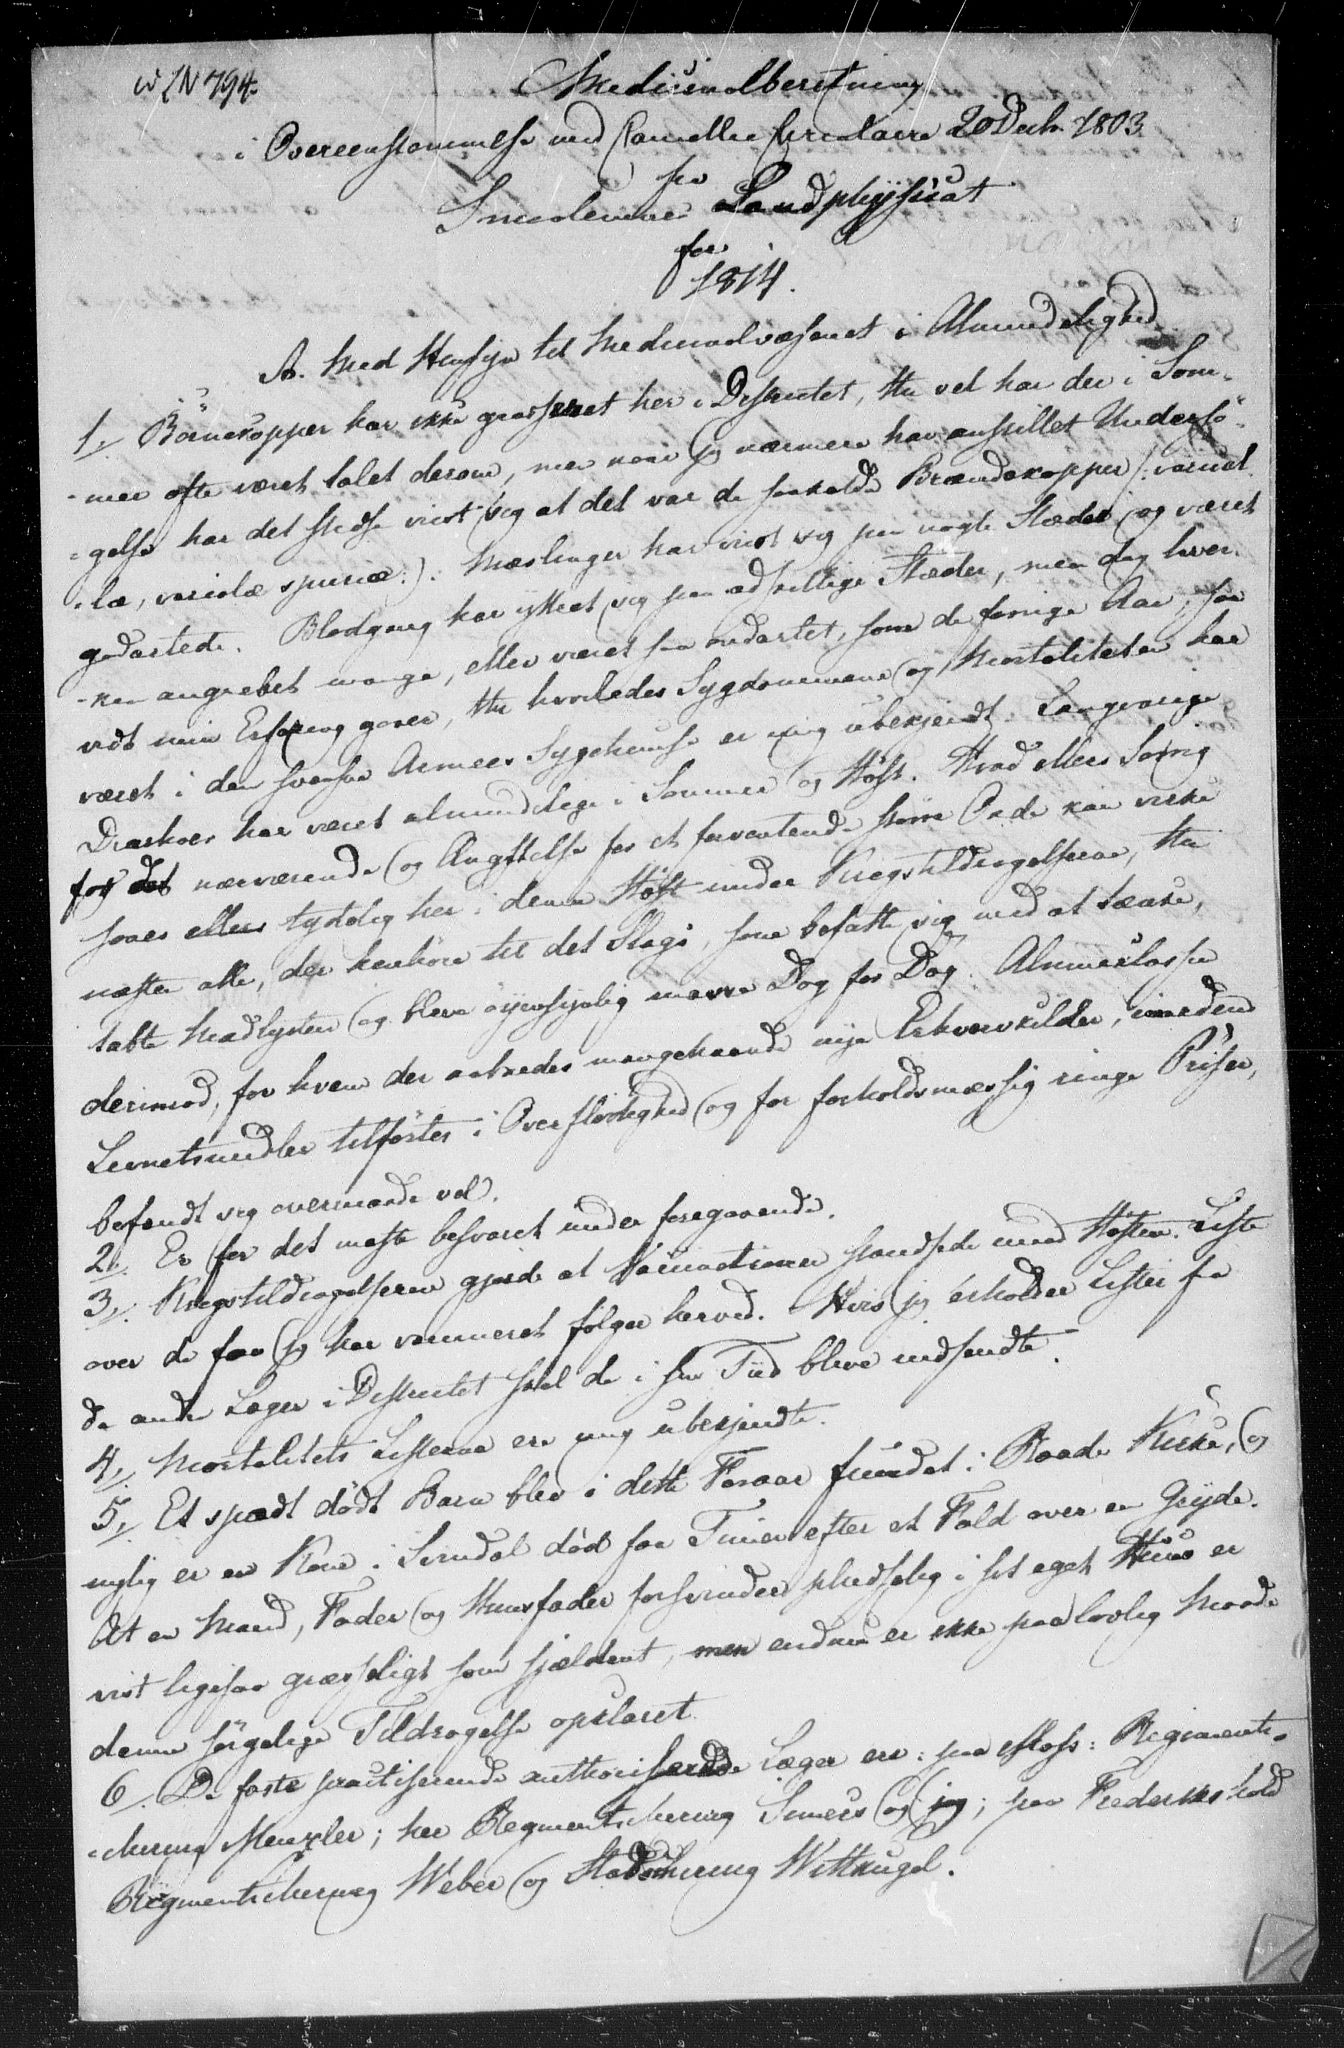 ad N 794.
Medicinalberetning
i Overeensstemmelse med Cancellie Circulaire 20 Decbr 1803.
fra
Smaalenenes Landphysicat
for
1814.
A. Med Hensyn til Medicinalvæsenet i Almindelighed.
1, Börnekopper har ikke grasseret her i Districtet, thi vel har der i Som-
-mer ofte været talet derom, men naar jeg nærmere har anstillet Undersö-
-gelse har det stedse viist sig at det var de saakaldte Brændekopper /: variol-
-læ, variolæ spuriæ :/. Mæslinger har viist sig paa nogle Stæder og været
godartede. Blodgang har yttret sig paa adskillige Stæder, men dog hver-
-ken angrebet mange, eller været saa ondartet, som de forrige Aar, saa
vidt min Erfaring gaaer, thi hvorledes Sygdommene og Mortaliteten har
været i den svenske Armees Sygehuuse er mig ubekjendt. Langvarige
Diarrhoer har været almindelige i Sommer og Höst. Hvad ellers Sorrig
for det nærværende og Ængstelse for et forventende större Onde kan virke
saaes ellers tydelig her i denne Höst under Krigstildragelserne, thi
næsten alle, der henhöre til det Slags, som befatte sig med at tænke,
tabte Madlysten og bleve öyensynlig mavre Dag for Dag. Almueklassen
derimod, for hvem der aabnedes mangehaande nye Erhvervkilder, imedens
Levnetsmidler tilförtes i Overflödighed og for forholdsmæssig ringe Priser,
befandt sig overmaade vel.
2, Er for det meste besvaret under foregaaende.
3, Krigstildragelserne gjorde at Vaccinationen standsede mod Hösten. Liste
over de faa jeg har vaccineret fölger herved. Hvis jeg erholder Lister fra
de andre Læger i Districtet skal de i sin Tiid blive indsendte.
4, Mortalitets Listerne ere mig ubekjendte.
5, Et spædt dödt Barn blev i dette Foraar fundet i Raade Kirke, og
nylig er en Kone i Svindal död faa Timer efter et Fald over en Gryde.
At en Mand, Fader og Huusfader forsvinder pludselig i sit eget Huus er
vist ligesaa græsseligt som sjældent, men endnu er ikke paa lovlig Maade
denne sörgelige Tildragelse opklaret.
6, De faste practiserende authoriserede Læger ere: paa Moss: Regiments-
-chirurg Menzler; her Regimentschirurg Simers og jeg; paa Frederikshald
Regimentschirurg Weber og Stadschirurg Wittkugel.